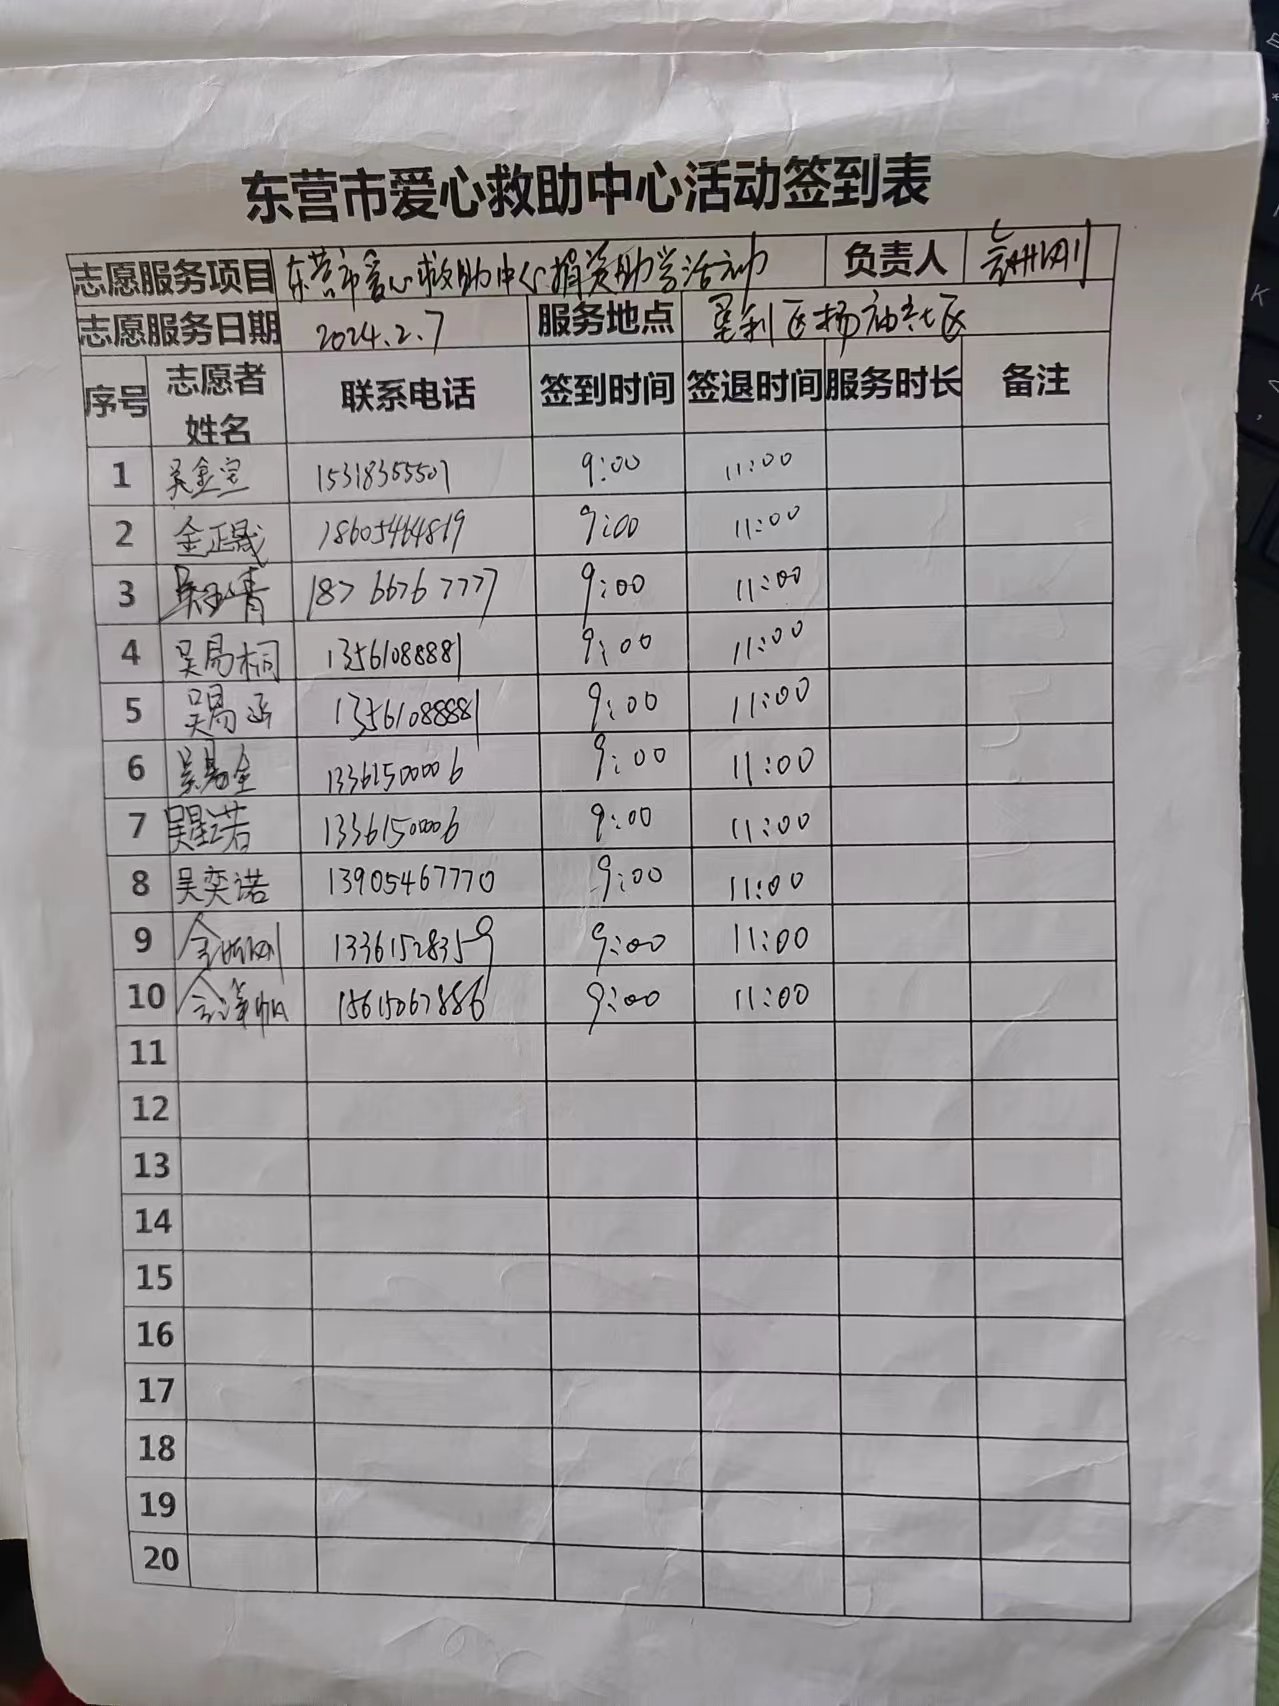 东营市爱心救助中心活动签到表
志愿服务项目 东营市爱心救助中心捐资助学活动 负责人
志愿服务日期 2024.2.7 服务地点 垦利区杨庙社区
序号 志愿者姓名 联系电话 签到时间 签退时间 服务时长 备注
1 吴金宝 15318355507 9:00 11:00
2 金正晟 18605464819 9:00 11:00
3 18766767777 9:00 11:00
4 吴易桐 13561088881 9:00 11:00
5 吴易函 13561088881 9:00 11:00
6 吴易全 13361500006 9:00 11:00
7 吴星诺 13361500006 9:00 11:00
8 吴奕诺 13905467770 9:00 11:00
9 13361528359 9:00 11:00
10 15615067886 9:00 11:00
11
12
13
14
15
16
17
18
19
20